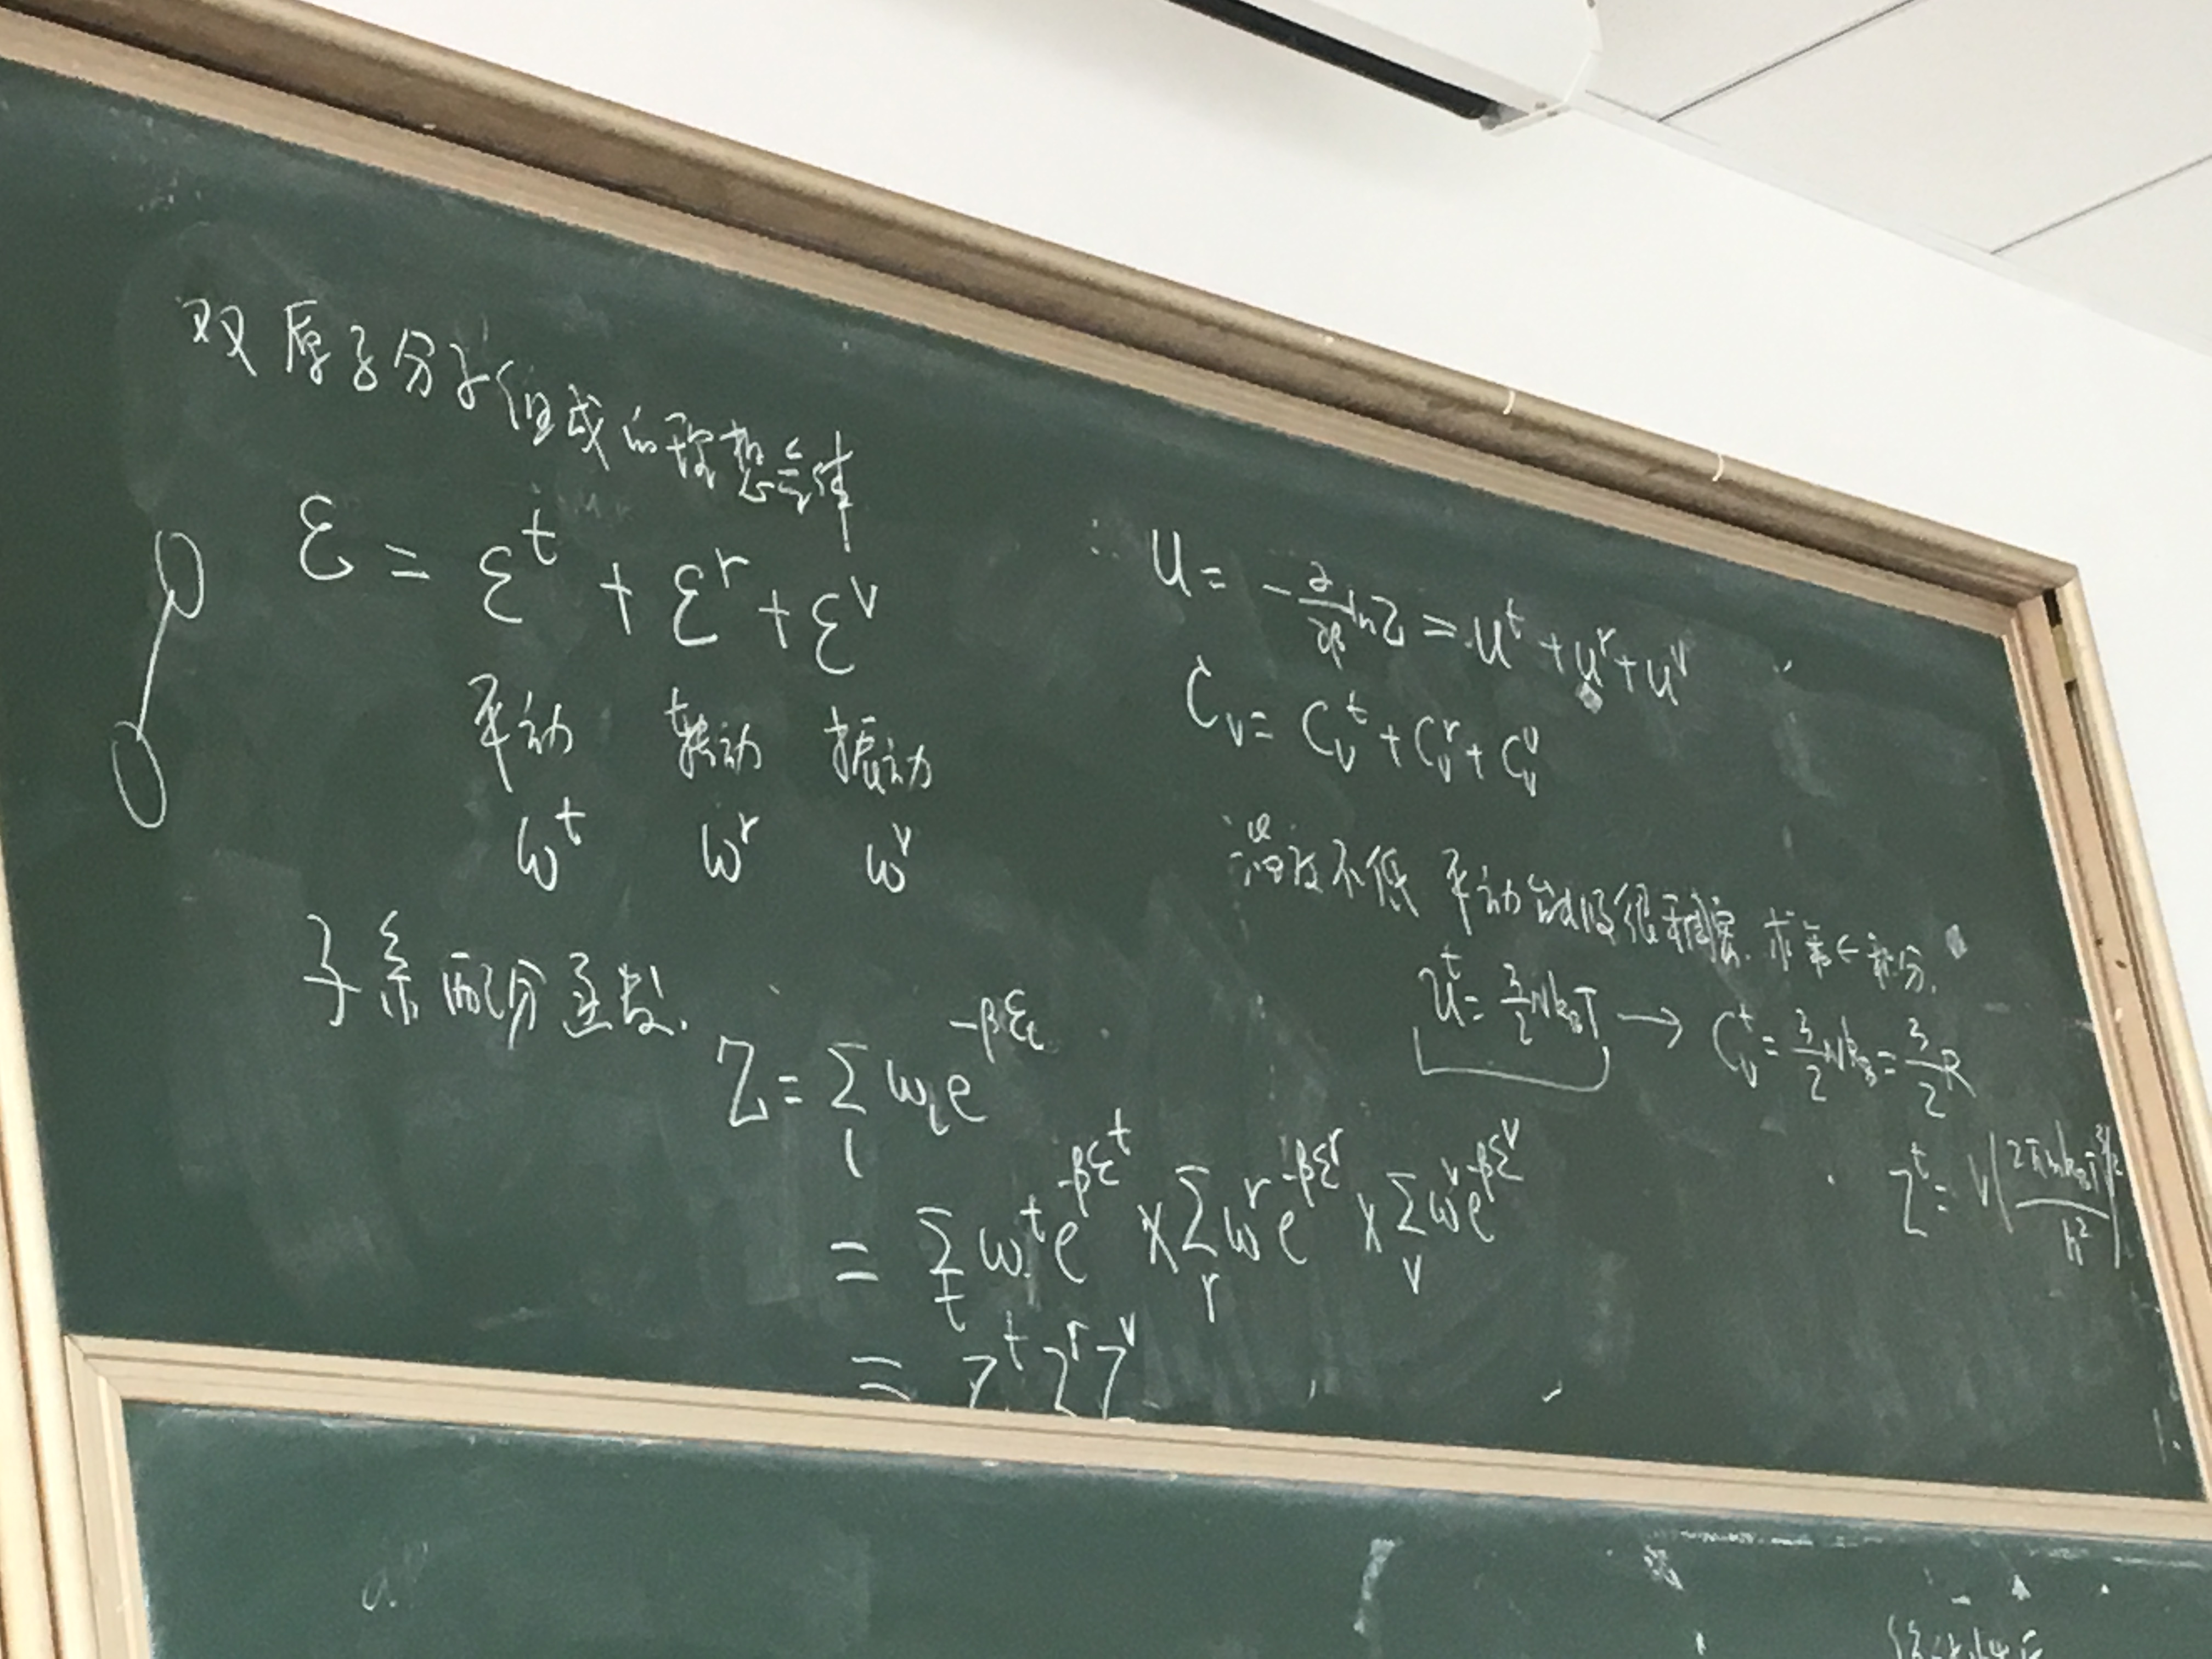 双原子分子组成的理想气体
ε = ε^t + ε^r + ε^v
平动 转动 振动
ω^t ω^r ω^v
子系配分函数.
Z = Σ_l ω_l e^{-βε_l}
= Σ_t ω^t e^{-βε^t} × Σ_r ω^r e^{-βε^r} × Σ_v ω^v e^{-βε^v}
= Z^t Z^r Z^v
∴ U = -∂/∂β ln Z = U^t + U^r + U^v
C_v = C_v^t + C_v^r + C_v^v
温度不低 平动能级很稠密. 求和←积分.
U^t = 3/2 Nk_BT → C_v^t = 3/2 Nk_B = 3/2 R
Z^t = V(2πmk_BT/h²)^{3/2}